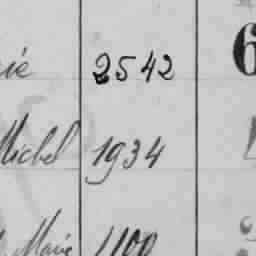 2542 6
Michel 1934
Marie 1100